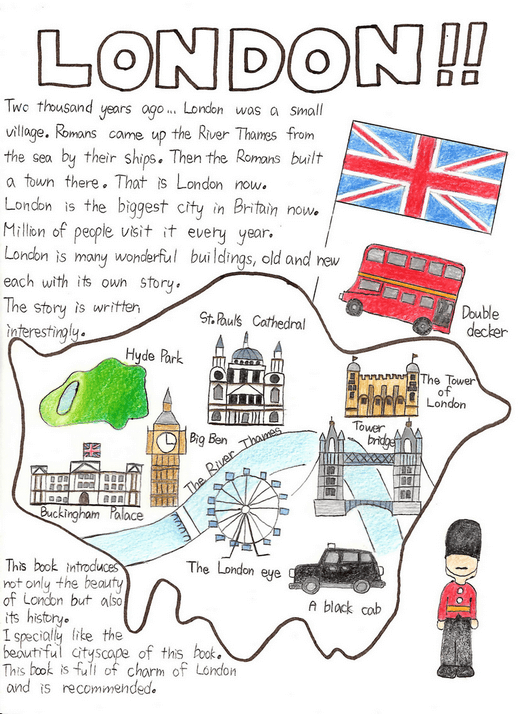 LONDON!!
Two thousand years ago... London was a small
village. Romans came up the River Thames from
the sea by their ships. Then the Romans built
a town there. That is London now.
London is the biggest city in Britain now.
Million of people visit it every year.
London is many wonderful buildings, old and new
each with its own story.
The story is written
interestingly.
Double
decker
St.Paul's Cathedral
Hyde Park
The Tower
of
London
Big Ben
Tower
bridge
The River Thames
Buckingham Palace
The London eye
A black cab
This book introduces
not only the beauty
of London but also
its history.
I specially like the
beautiful cityscape of this book.
This book is full of charm of London
and is recommended.